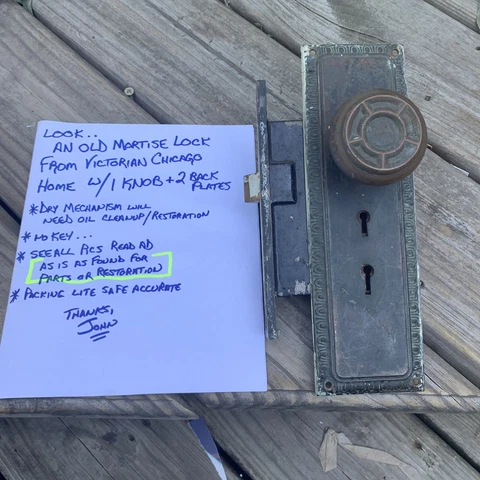 LOOK..
AN OLD MORTISE LOCK
FROM VICTORIAN CHICAGO
HOME W/1 KNOB + 2 BACK PLATES
* DRY MECHANISM WILL
NEED OIL CLEANUP/RESTORATION
* NO KEY...
* SEE ALL PICS READ AD
AS IS AS FOUND FOR
PARTS OR RESTORATION
* PACKING LITE SAFE ACCURATE
THANKS,
JOHN